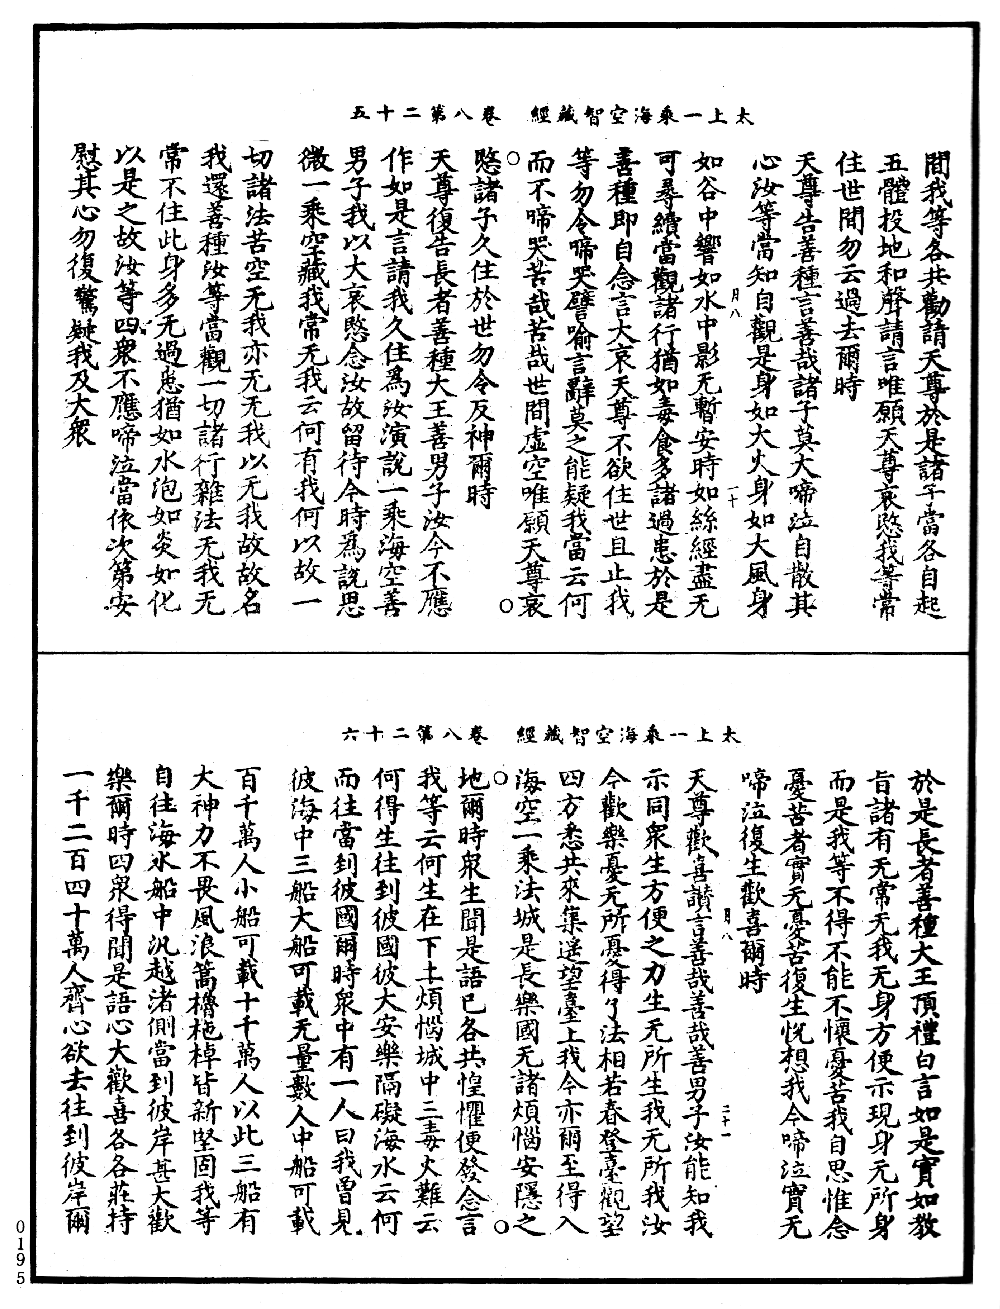 太上一乘海空智藏經　卷八第二十五
間我等各共勸請天尊於是諸子當各自起
五體投地和聲請言唯願天尊哀愍我等常
住世間勿云過去爾時
天尊告善種言善哉諸子莫大啼泣自散其
心汝等當知自觀是身如大火身如大風身
月八
一十
如谷中響如水中影无暫安時如絲經盡无
可尋續當觀諸行猶如毒食多諸過患於是
善種即自念言大哀天尊不欲住世且止我
等勿令啼哭譬喻言辭莫之能疑我當云何
而不啼哭苦哉苦哉世間虛空唯願天尊哀
愍諸子久住於世勿令反神爾時
天尊復告長者善種大王善男子汝今不應
作如是言請我久住為汝演說一乘海空善
男子我以大哀愍念汝故留待今時為說思
微一乘空藏我常无我云何有我何以故一
切諸法苦空无我亦无无我以无我故故名
我還善種汝等當觀一切諸行雜法无我无
常不住此身多无過患猶如水泡如炎如化
以是之故汝等四眾不應啼泣當依次第安
慰其心勿復驚疑我及大眾
太上一乘海空智藏經　卷八第二十六
於是長者善種大王頂禮白言如是實如教
旨諸有无常无我无身方便示現身无所身
而是我等不得不能不懷憂苦我自思惟念
憂苦者實无憂苦復生恱想我今啼泣實无
啼泣復生歡喜爾時
月八
二十一
天尊歡喜讚言善哉善哉善男子汝能知我
示同眾生方便之力生无所生我无所我汝
今歡樂憂无所憂得了法相若春登臺觀望
四方悉共來集遥望臺上我今亦爾至得入
海空一乘法城是長樂國无諸煩惱安隱之
地爾時眾生聞是語已各共惶懼便發念言
我等云何生在下土煩惱城中三毒火難云
何得生往到彼國彼大安樂隔礙海水云何
而往當到彼國爾時眾中有一人曰我曾見
彼海中三船大船可載无量數人中船可載
百千萬人小船可載十十萬人以此三船有
大神力不畏風浪篙櫓柂棹皆新堅固我等
自往海水船中汎越渚側當到彼岸甚大歡
樂爾時四眾得聞是語心大歡喜各各莊持
一千二百四十萬人齊心欲去往到彼岸爾
0195